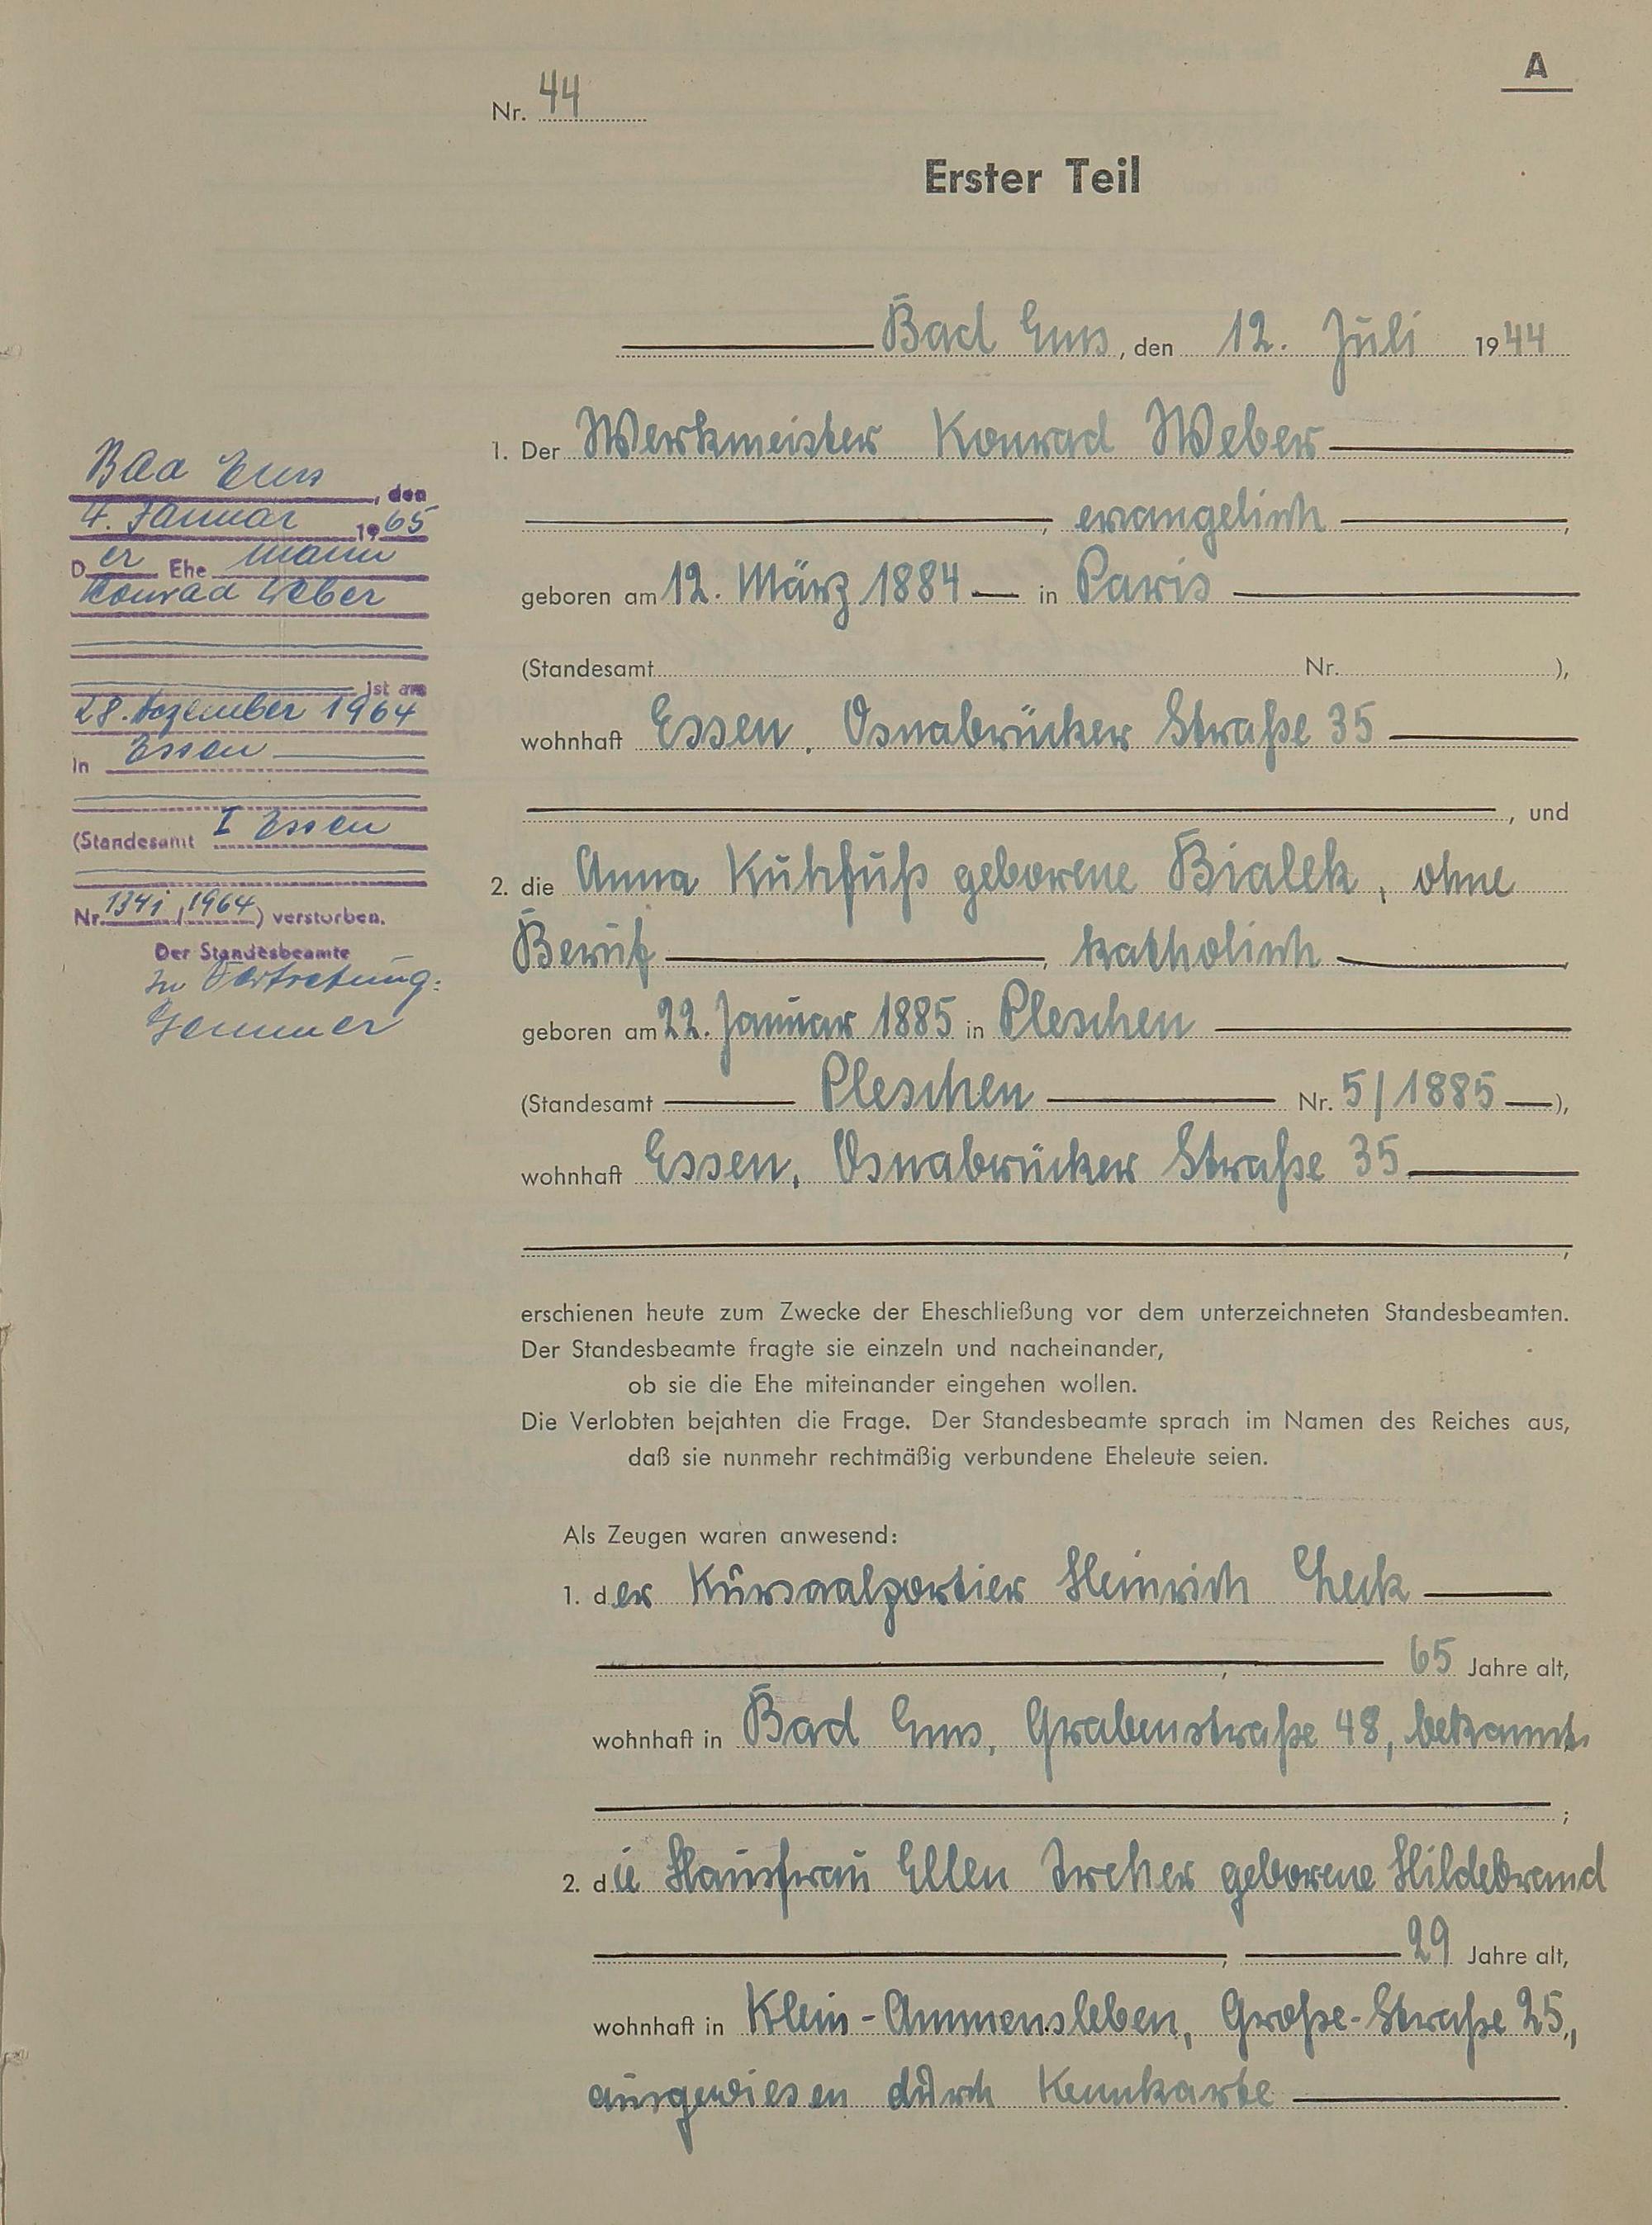 A
Nr. 44
Erster Teil
Bad Ems, den 12. Juli 1944
1. Der Werkmeister Konrad Weber
, evangelisch ,
geboren am 12. März 1884 in Paris
(Standesamt Nr. ),
wohnhaft Essen, Osnabrücker Straße 35
, und
2. die Anna Kuhfuß geborene Bialek, ohne
Beruf , katholisch ,
geboren am 22. Januar 1885 in Pleschen
(Standesamt Pleschen Nr. 5/1885 ),
wohnhaft Essen, Osnabrücker Straße 35
,
erschienen heute zum Zwecke der Eheschließung vor dem unterzeichneten Standesbeamten.
Der Standesbeamte fragte sie einzeln und nacheinander,
ob sie die Ehe miteinander eingehen wollen.
Die Verlobten bejahten die Frage. Der Standesbeamte sprach im Namen des Reiches aus,
daß sie nunmehr rechtmäßig verbundene Eheleute seien.
Als Zeugen waren anwesend:
1. der Kursaalportier Heinrich
, 65 Jahre alt,
wohnhaft in Bad Ems, Grabenstraße 48, bekannt.
;
2. die Hausfrau Ellen geborene Hildebrand
, 29 Jahre alt,
wohnhaft in Klein-Ammensleben, Große-Straße 25,
ausgewiesen durch Kennkarte .
Bad Ems, den
4. Januar 1965
Der Ehemann
Konrad Weber
ist am
28. Dezember 1964
in Essen
(Standesamt I Essen
Nr. /1964) verstorben.
Der Standesbeamte
In Vertretung: